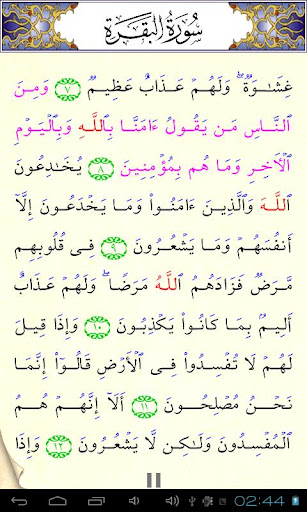 سُورَةُ البَقَرَة
غِشَٰوَةٌ ۖ وَلَهُمْ عَذَابٌ عَظِيمٌ ٧ وَمِنَ
ٱلنَّاسِ مَن يَقُولُ ءَامَنَّا بِٱللَّهِ وَبِٱلْيَوْمِ
ٱلْأَخِرِ وَمَا هُم بِمُؤْمِنِينَ ٨ يُخَٰدِعُونَ
ٱللَّهَ وَٱلَّذِينَ ءَامَنُوا۟ وَمَا يَخْدَعُونَ إِلَّآ
أَنفُسَهُمْ وَمَا يَشْعُرُونَ ٩ فِى قُلُوبِهِم
مَّرَضٌ فَزَادَهُمُ ٱللَّهُ مَرَضًا ۖ وَلَهُمْ عَذَابٌ
أَلِيمٌۢ بِمَا كَانُوا۟ يَكْذِبُونَ ١٠ وَإِذَا قِيلَ
لَهُمْ لَا تُفْسِدُوا۟ فِى ٱلْأَرْضِ قَالُوٓا۟ إِنَّمَا
نَحْنُ مُصْلِحُونَ ١١ أَلَآ إِنَّهُمْ هُمُ
ٱلْمُفْسِدُونَ وَلَٰكِن لَّا يَشْعُرُونَ ١٢ وَإِذَا
02:44